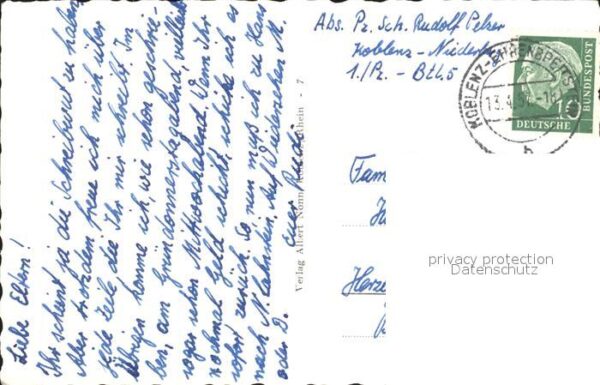 Liebe Eltern!
Ihr scheint ja die Schreibwut zu haben
Aber trotzdem freue ich mich über
jede Zeile, die Ihr mir schreibt. Im
Übrigen komme ich, wie schon geschrie-
ben, am Gründonnerstagabend, vielleicht
sogar schon Mittwochabend. Wenn Ihr
nochmal Geld schickt, schicke ich es
sofort zurück. So nun muß ich zu Haus
nach N. Lahnstein. Auf Wiedersehen M.
oder D. Euer Rudi
Verlag Albert Nonn, Rhein - 7
Abs. Pz. Sch. Rudolf Pelzer
Koblenz-Niederb
1./Pz. - Btl. 5
KOBLENZ-EHRENBREITST
13.4.5
b
DEUTSCHE
BUNDESPOST
10
Fam
Herze
privacy protection
Datenschutz